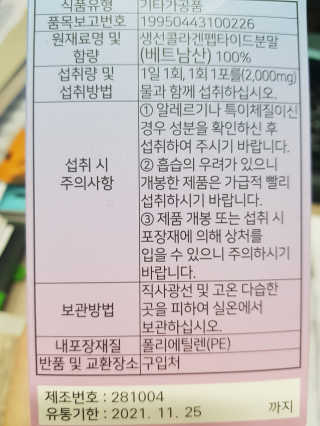 식품유형 기타가공품
품목보고번호 19950443100226
원재료명 및 생선콜라겐펩타이드분말
함량 (베트남산) 100%
섭취량 및 1일 1회, 1회 1포를(2,000mg)
섭취방법 물과 함께 섭취하십시오.
① 알레르기나 특이체질이신
경우 성분을 확인하신 후
섭취하여 주시기 바랍니다.
섭취 시 ② 흡습의 우려가 있으니
주의사항 개봉한 제품은 가급적 빨리
섭취하시기 바랍니다.
③ 제품 개봉 또는 섭취 시
포장재에 의해 상처를
입을 수 있으니 주의하시기
바랍니다.
직사광선 및 고온 다습한
보관방법 곳을 피하여 실온에서
보관하십시오.
내포장재질 폴리에틸렌(PE)
반품 및 교환장소 구입처
제조번호 : 281004
유통기한 : 2021. 11. 25 까지